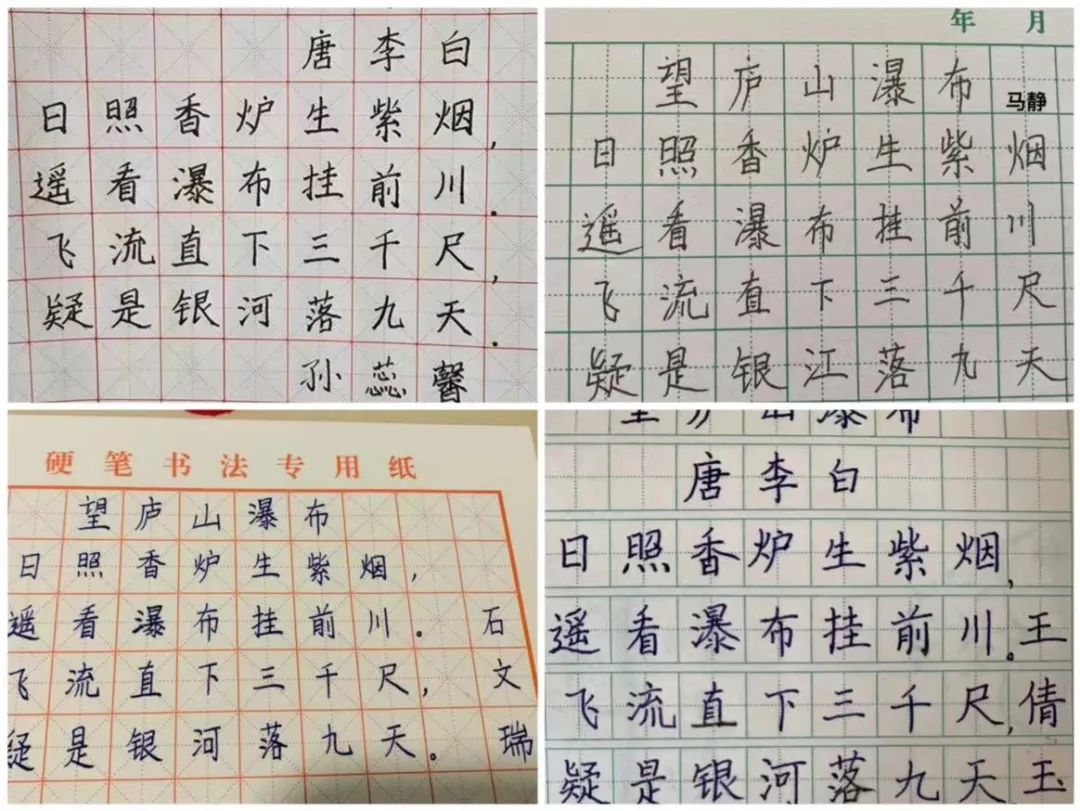 唐李白
日照香炉生紫烟，
遥看瀑布挂前川。
飞流直下三千尺，
疑是银河落九天。
孙蕊馨
年 月
望庐山瀑布
马静
日照香炉生紫烟
遥看瀑布挂前川
飞流直下三千尺
疑是银江落九天
硬笔书法专用纸
望庐山瀑布
日照香炉生紫烟，
遥看瀑布挂前川。石
飞流直下三千尺，文
疑是银河落九天。瑞
望庐山瀑布
唐李白
日照香炉生紫烟，
遥看瀑布挂前川。王
飞流直下三千尺，倩
疑是银河落九天玉